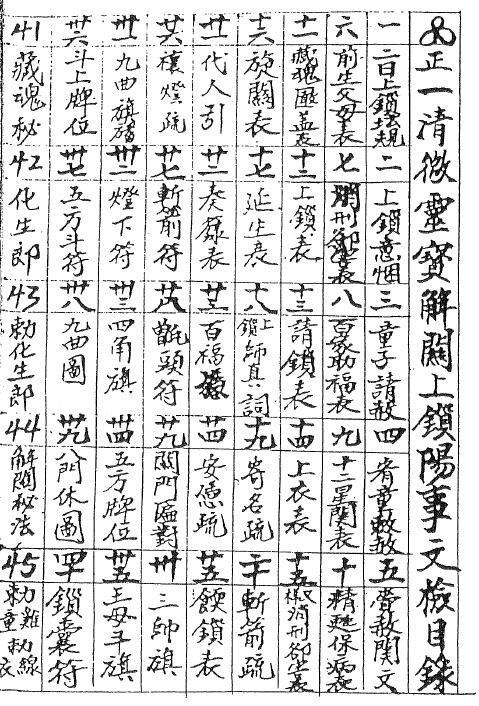 正一清微靈寶解關上鎖陽事文檢目錄
一 二日上鎖壇規
二 上鎖意
三 童子請赦
四 宥童赦
五 賫赦関文
六 前生父母表
七 刑
八 百家助福表
九 十二星関表
十 精甦保病表
十一 藏魂匣盖表
十二 上鎖表
十三 請鎖表
十四 上衣表
十五 消刑卻
十六 旋關表
十七 延生表
十八 上鎖師真詞
十九 寄名疏
二十 斬箭疏
廿一 代人引
廿二 奏籙表
廿三 百福
廿四 安億疏
廿五 鎖表
廿六 禳燈疏
廿七 斬箭符
廿八 頭符
廿九 關門匾對
卅 三帥旗
卅一 九曲旗
卅二 燈下符
卅三 四角旗
卅四 五方牌位
卅五 王母斗旗
卅六 斗上牌位
卅七 五方斗符
卅八 九曲圖
卅九 八門休圖
四十 鎖囊符
41 藏魂秘
42 化生郎
43 勅化生郎
44 解関秘法
45 勅雞勅線 勅童衣